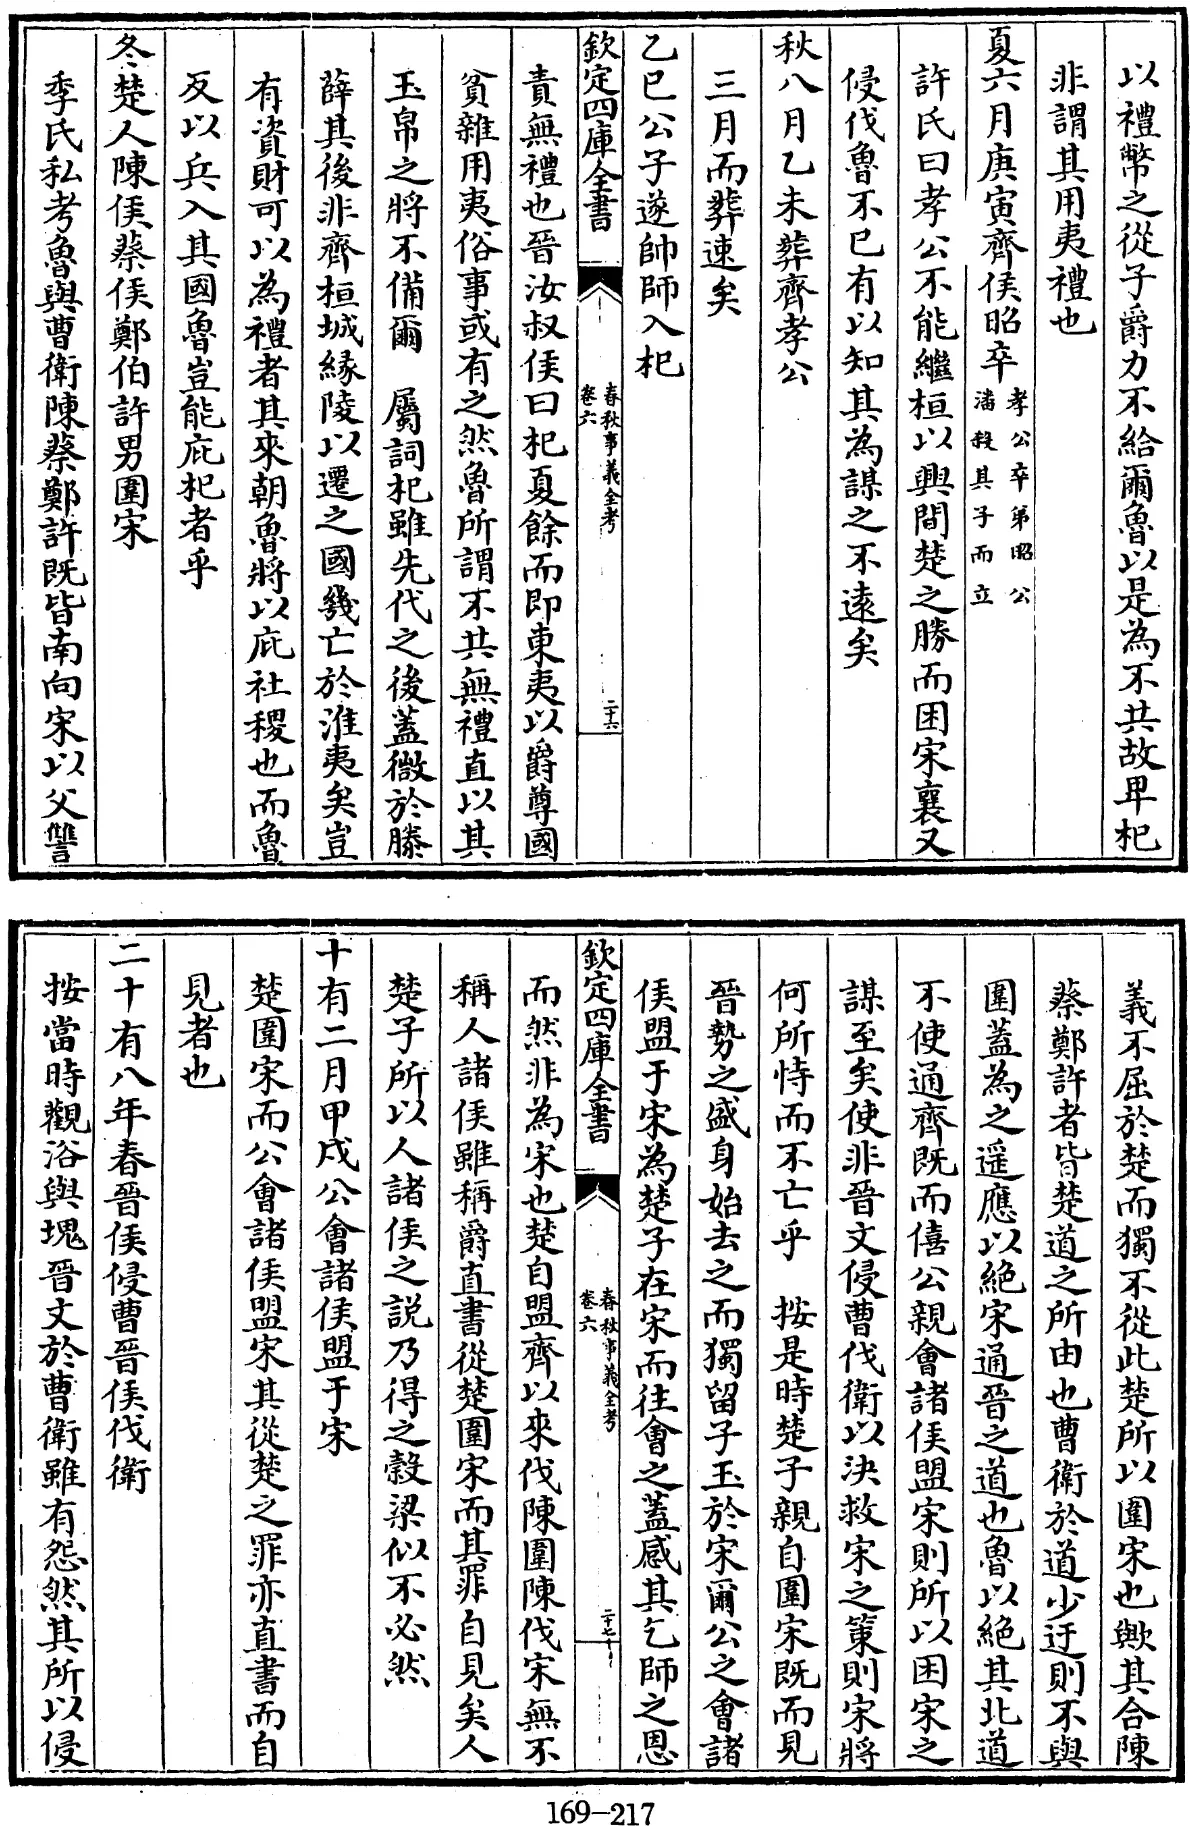 以禮幣之從子爵力不給爾魯以是為不共故卑杞
非謂其用夷禮也
夏六月庚寅齊侯昭卒孝公卒弟昭公
潘殺其子而立
許氏曰孝公不能繼桓以興間楚之勝而困宋襄又
侵伐魯不已有以知其為謀之不遠矣
秋八月乙未葬齊孝公
三月而葬速矣
乙巳公子遂帥師入杞
欽定四庫全書
春秋事義全考
卷六
二十六
責無禮也晉汝叔侯曰杞夏餘而即東夷以爵尊國
貧雜用夷俗事或有之然魯所謂不共無禮直以其
玉帛之將不備爾 屬詞杞雖先代之後蓋微於滕
薛其後非齊桓城緣陵以遷之國幾亡於淮夷矣豈
有資財可以為禮者其來朝魯將以庇社稷也而魯
反以兵入其國魯豈能庇杞者乎
冬楚人陳侯蔡侯鄭伯許男圍宋
季氏私考魯與曹衛陳蔡鄭許既皆南向宋以父讐
義不屈於楚而獨不從此楚所以圍宋也歟其合陳
蔡鄭許者皆楚道之所由也曹衛於道少迂則不與
圍蓋為之遥應以絶宋通晉之道也魯以絶其北道
不使通齊既而僖公親會諸侯盟宋則所以困宋之
謀至矣使非晉文侵曹伐衛以決救宋之策則宋將
何所恃而不亡乎 按是時楚子親自圍宋既而見
晉勢之盛身始去之而獨留子玉於宋爾公之會諸
侯盟于宋為楚子在宋而往會之蓋感其乞師之恩
欽定四庫全書
春秋事義全考
卷六
二十七
而然非為宋也楚自盟齊以來伐陳圍陳伐宋無不
稱人諸侯雖稱爵直書從楚圍宋而其罪自見矣人
楚子所以人諸侯之説乃得之穀梁似不必然
十有二月甲戌公會諸侯盟于宋
楚圍宋而公會諸侯盟宋其從楚之罪亦直書而自
見者也
二十有八年春晉侯侵曹晉侯伐衛
按當時觀浴與塊晉文於曹衛雖有怨然其所以侵
169-217